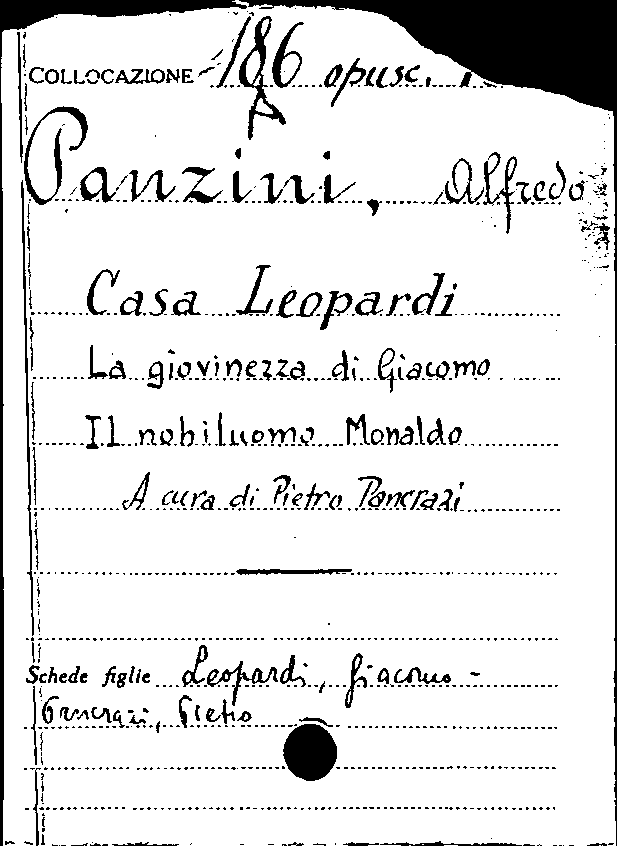 COLLOCAZIONE 186 opusc.
A
Panzini, Alfredo
Casa Leopardi
La giovinezza di Giacomo
Il nobiluomo Monaldo
A cura di Pietro Pancrazi
Schede figlie Leopardi, Giacomo -
Pancrazi, Pietro